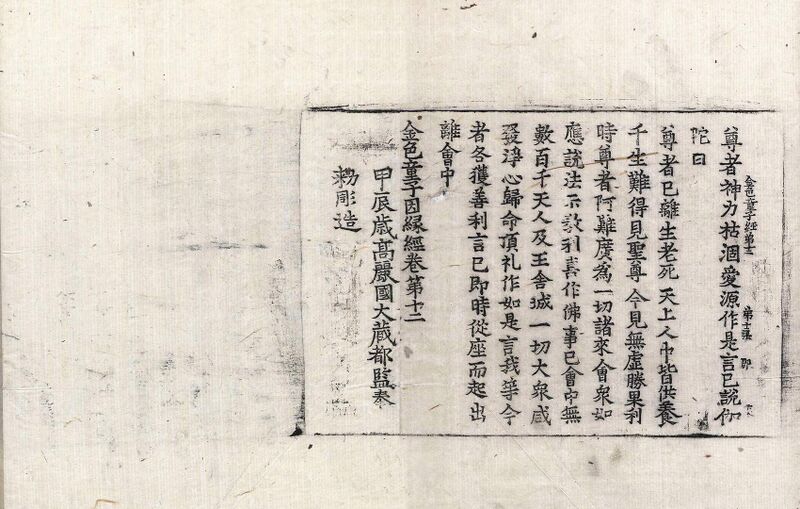 尊者神力枯涸愛源作是言已說伽
金色童子經第十二
第十一張
陁曰
尊者已離生老死 天上人中皆供養
千生難得見聖尊 今見無虛勝果利
時尊者阿難廣爲一切諸來會衆如
應說法示敎利喜作佛事已會中無
數百千天人及王舍城一切大衆咸
發淨心歸命頂礼作如是言我等今
者各獲善利言已即時從座而起出
離會中
金色童子因緣經卷第十二
甲辰歲高麗國大藏都監奉
勑彫造